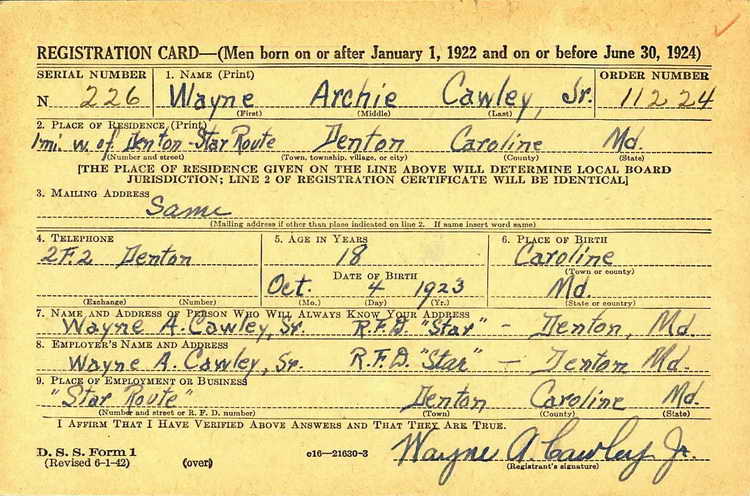 REGISTRATION CARD—(Men born on or after January 1, 1922 and on or before June 30, 1924)
SERIAL NUMBER 1. NAME (Print) ORDER NUMBER
N 226 Wayne Archie Cawley, Jr. 11224
(First) (Middle) (Last)
2. PLACE OF RESIDENCE (Print)
1 mi. w. of Denton - Star Route Denton Caroline Md.
(Number and street) (Town, township, village, or city) (County) (State)
[THE PLACE OF RESIDENCE GIVEN ON THE LINE ABOVE WILL DETERMINE LOCAL BOARD
JURISDICTION; LINE 2 OF REGISTRATION CERTIFICATE WILL BE IDENTICAL]
3. MAILING ADDRESS
Same
(Mailing address if other than place indicated on line 2. If same insert word same)
4. TELEPHONE 5. AGE IN YEARS 6. PLACE OF BIRTH
2F.2 Denton 18 Caroline
(Town or county)
DATE OF BIRTH
Oct. 4 1923 Md.
(Exchange) (Number) (Mo.) (Day) (Yr.) (State or country)
7. NAME AND ADDRESS OF PERSON WHO WILL ALWAYS KNOW YOUR ADDRESS
Wayne A. Cawley, Sr. R.F.D. "Star" - Denton, Md.
8. EMPLOYER'S NAME AND ADDRESS
Wayne A. Cawley, Sr. R.F.D. "Star" - Denton Md.
9. PLACE OF EMPLOYMENT OR BUSINESS
"Star Route" Denton Caroline Md.
(Number and street or R. F. D. number) (Town) (County) (State)
I AFFIRM THAT I HAVE VERIFIED ABOVE ANSWERS AND THAT THEY ARE TRUE.
D. S. S. Form 1
(Revised 6-1-42) (over) c16—21630-3 Wayne A. Cawley Jr.
(Registrant's signature)